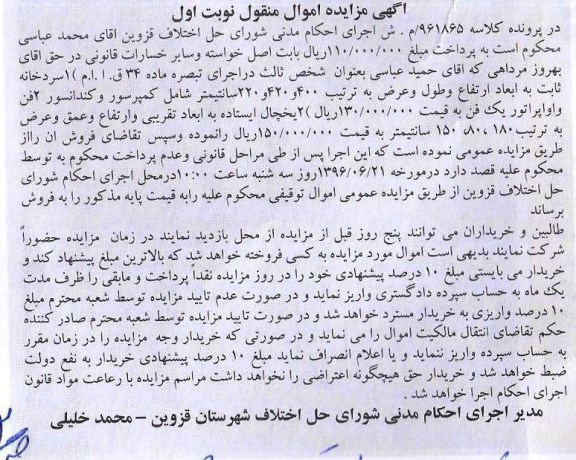 آگهی مزایده اموال منقول نوبت اول
در پرونده کلاسه ۹۶۱۸۶۵/م . ش اجرای احکام مدنی شورای حل اختلاف قزوین آقای محمد عباسی
محکوم است به پرداخت مبلغ ۱۱۰/۰۰۰/۰۰۰ریال بابت اصل خواسته وسایر خسارات قانونی در حق آقای
بهروز مرداهی که آقای حمید عباسی بعنوان شخص ثالث دراجرای تبصره ماده ۳۴ ق. ا .ا.م )۱سردخانه
ثابت به ابعاد ارتفاع وطول وعرض به ترتیب ۴۰۰و۴۲۰و۲۲۰سانتیمتر شامل کمپرسور وکندانسور ۲فن
واواپراتور یک فن به قیمت ۱۳۰/۰۰۰/۰۰۰ریال )۲یخچال ایستاده به ابعاد تقریبی وارتفاع وعمق وعرض
به ترتیب۱۸۰ ،۸۰، ۱۵۰ سانتیمتر به قیمت ۱۵۰/۰۰۰/۰۰۰ریال رانموده وسپس تقاضای فروش ان رااز
طریق مزایده عمومی نموده است که این اجرا پس از طی مراحل قانونی وعدم پرداخت محکوم به توسط
محکوم علیه قصد دارد درمورخه ۱۳۹۶/۰۶/۲۱روز سه شنبه ساعت ۱۰:۰۰درمحل اجرای احکام شورای
حل اختلاف قزوین از طریق مزایده عمومی اموال توقیفی محکوم علیه رابه قیمت پایه مذکور را به فروش
برساند
طالبین و خریداران می توانند پنج روز قبل از مزایده از محل بازدید نمایند در زمان مزایده حضوراً
شرکت نمایند بدیهی است اموال مورد مزایده به کسی فروخته خواهد شد که بالاترین مبلغ پیشنهاد کند و
خریدار می بایستی مبلغ ۱۰ درصد پیشنهادی خود را در روز مزایده نقداً پرداخت و مابقی را ظرف مدت
یک ماه به حساب سپرده دادگستری واریز نماید و در صورت عدم تایید مزایده توسط شعبه محترم مبلغ
۱۰ درصد واریزی به خریدار مسترد خواهد شد و در صورت تایید مزایده توسط شعبه محترم صادر کننده
حکم تقاضای انتقال مالکیت اموال را می نماید و در صورتی که خریدار وجه مزایده را در زمان مقرر
به حساب سپرده واریز ننماید و یا اعلام انصراف نماید مبلغ ۱۰ درصد پیشنهادی خریدار به نفع دولت
ضبط خواهد شد و خریدار حق هیچگونه اعتراضی را نخواهد داشت مراسم مزایده با رعاعت مواد قانون
اجرای احکام اجرا خواهد شد .
مدیر اجرای احکام مدنی شورای حل اختلاف شهرستان قزوین – محمد خلیلی